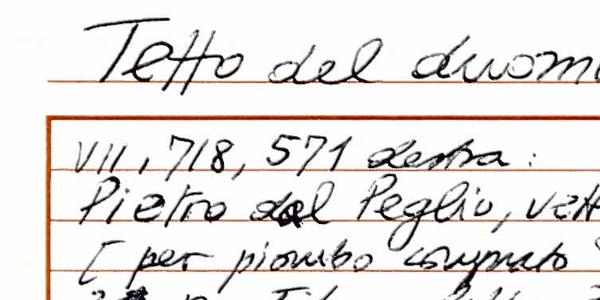 Tetto del duomo
VII, 718, 571 destra:
Pietro dal Peglio, vett
[ per piombo comprato